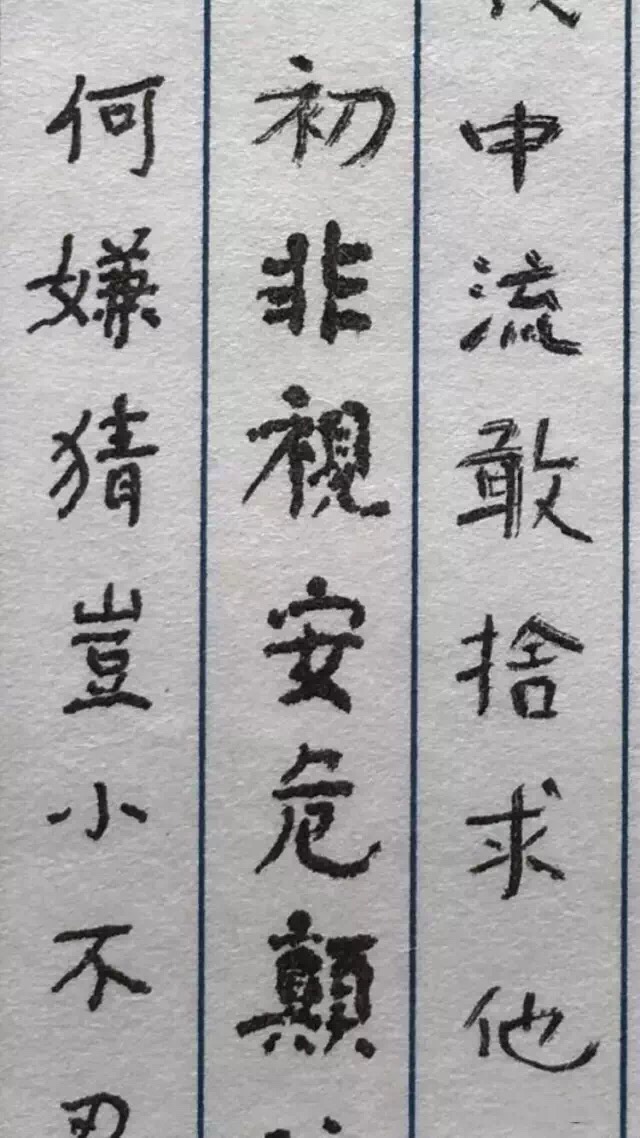 中流敢捨求他
初非視安危顛
何嫌猜豈小不